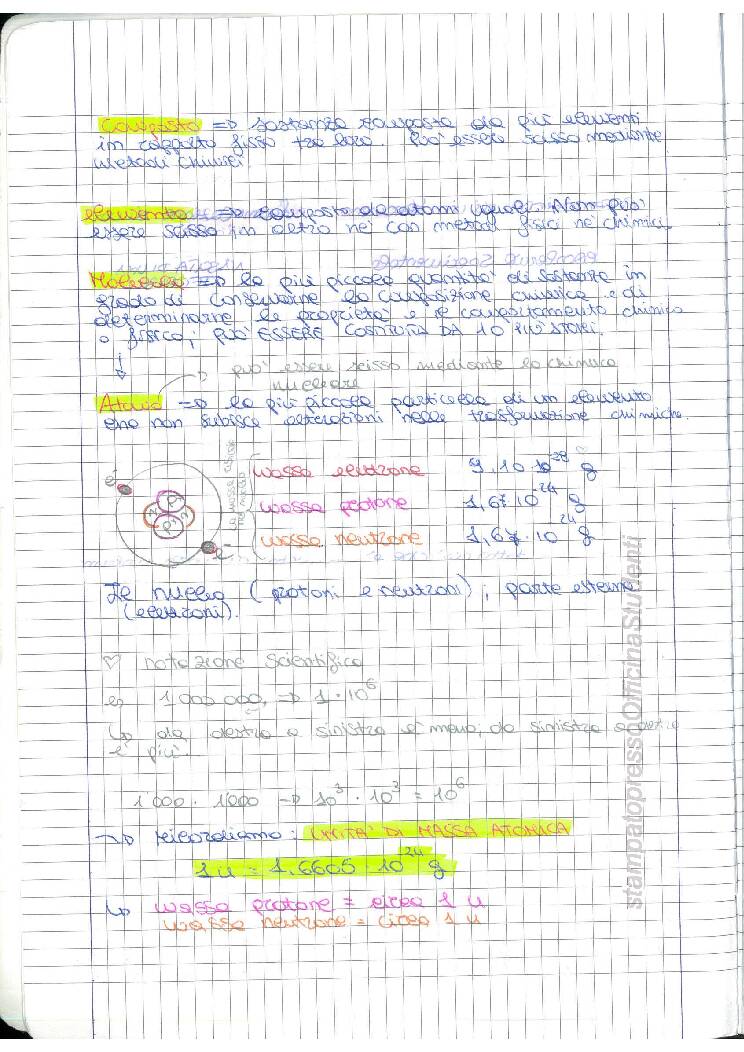 Composto => sostanza composta da più elementi
in rapporto fisso tra loro. Può essere scisso mediante
metodi chimici.
elemento => composto da atomi uguali. Non può
essere scisso in altro nè con metodi fisici nè chimici
Molecola => la più piccola quantità di sostanza in
grado di conservarne la composizione chimica e di
determinarne le proprietà e il comportamento chimico
o fisico; può ESSERE COSTITUITA DA 1 O PIÙ ATOMI.
può essere scisso mediante la chimica
nucleare
Atomo => la più piccola particella di un elemento
che non subisce alterazioni nelle trasformazione chimiche.
massa elettrone 9,10 10^-28 g
massa protone 1,67·10^-24 g
massa neutrone 1,67·10^-24 g
(protoni e neutroni); parte esterna
(elettroni).
♡ notazione scientifica
es 1000 000, => 1·10^6
↳ da destra a sinistra è meno, da sinistra a destra
è più.
1000 · 1000 => 10^3 · 10^3 = 10^6
→ ricordiamo: UNITÀ DI MASSA ATOMICA
1 u = 1,6605 10^-24 g
↳ massa protone = circa 1 u
massa neutrone = circa 1 u
stampatopressoOfficinaStudenti